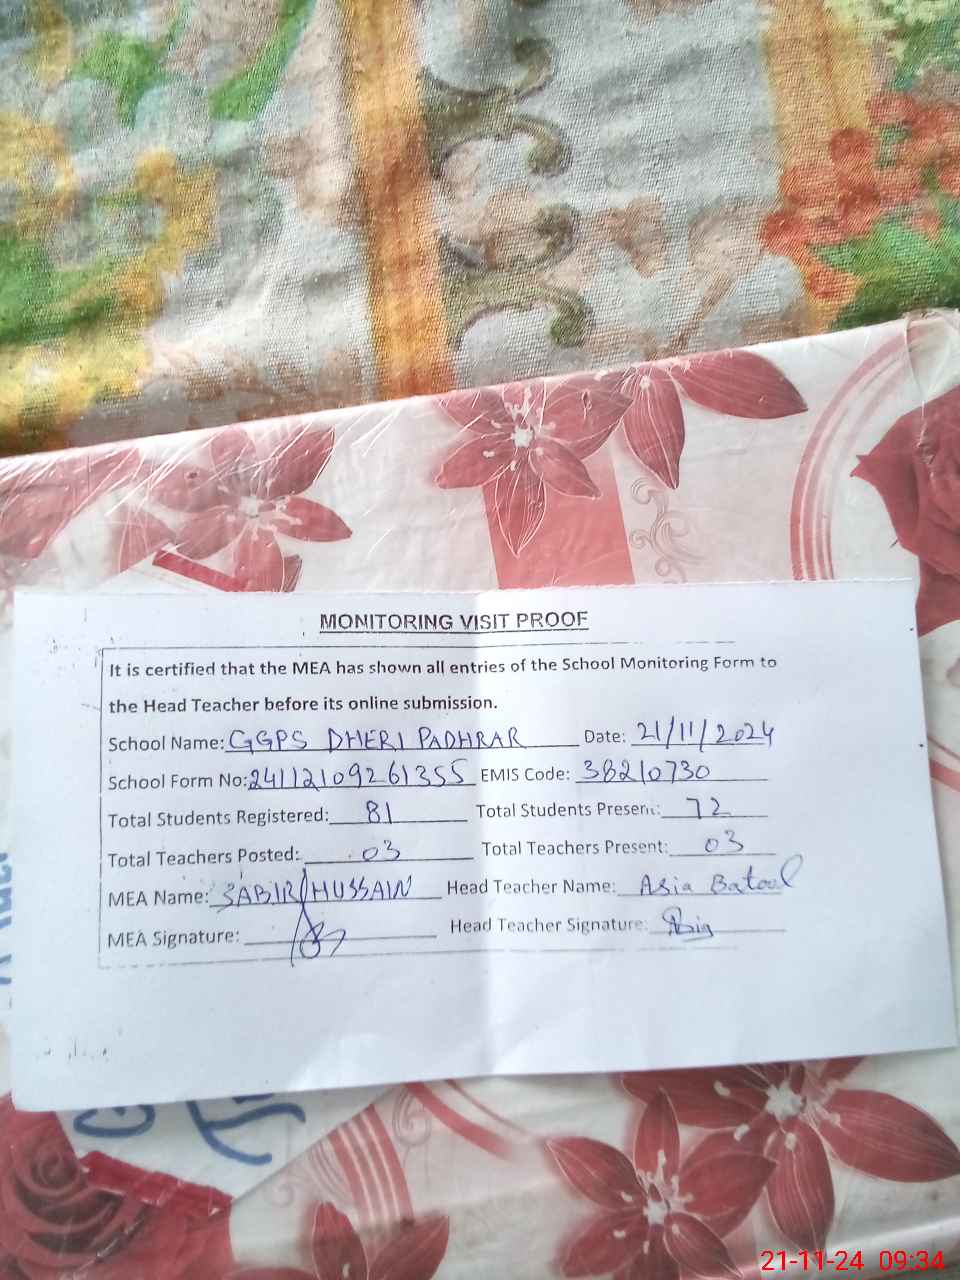 MONITORING VISIT PROOF
It is certified that the MEA has shown all entries of the School Monitoring Form to
the Head Teacher before its online submission.
School Name: GGPS DHERI PADHRAR Date: 21/11/2024
School Form No: 24112109261355 EMIS Code: 38210730
Total Students Registered: 81 Total Students Present: 72
Total Teachers Posted: 03 Total Teachers Present: 03
MEA Name: SABIR HUSSAIN Head Teacher Name: Asia Batool
MEA Signature: Head Teacher Signature:
21-11-24 09:34